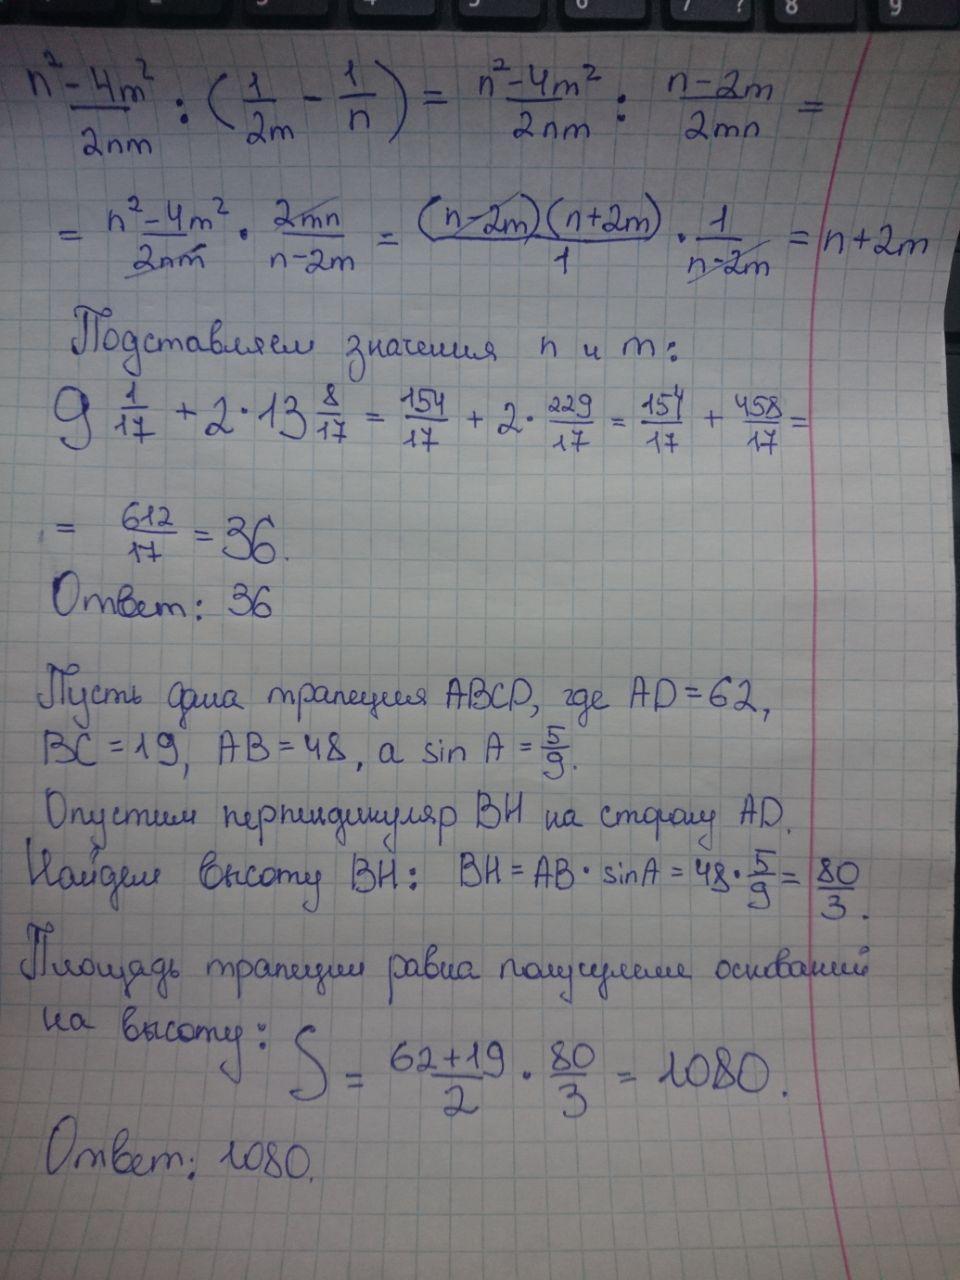 n² - 4m² / 2nm : (1/2m - 1/n) = n² - 4m² / 2nm : n - 2m / 2mn =
= n² - 4m² / 2nm · 2mn / n - 2m = (n - 2m)(n + 2m) / 1 · 1 / n - 2m = n + 2m
Подставляем значения n и m:
9 1/17 + 2 · 13 8/17 = 154/17 + 2 · 229/17 = 154/17 + 458/17 =
= 612/17 = 36.
Ответ: 36
Пусть дана трапеция ABCD, где AD = 62,
BC = 19, AB = 48, а sin A = 5/9.
Опустим перпендикуляр BH на сторону AD.
Найдем высоту BH: BH = AB · sin A = 48 · 5/9 = 80/3.
Площадь трапеции равна полусумме оснований
на высоту: S = 62 + 19 / 2 · 80/3 = 1080.
Ответ: 1080.